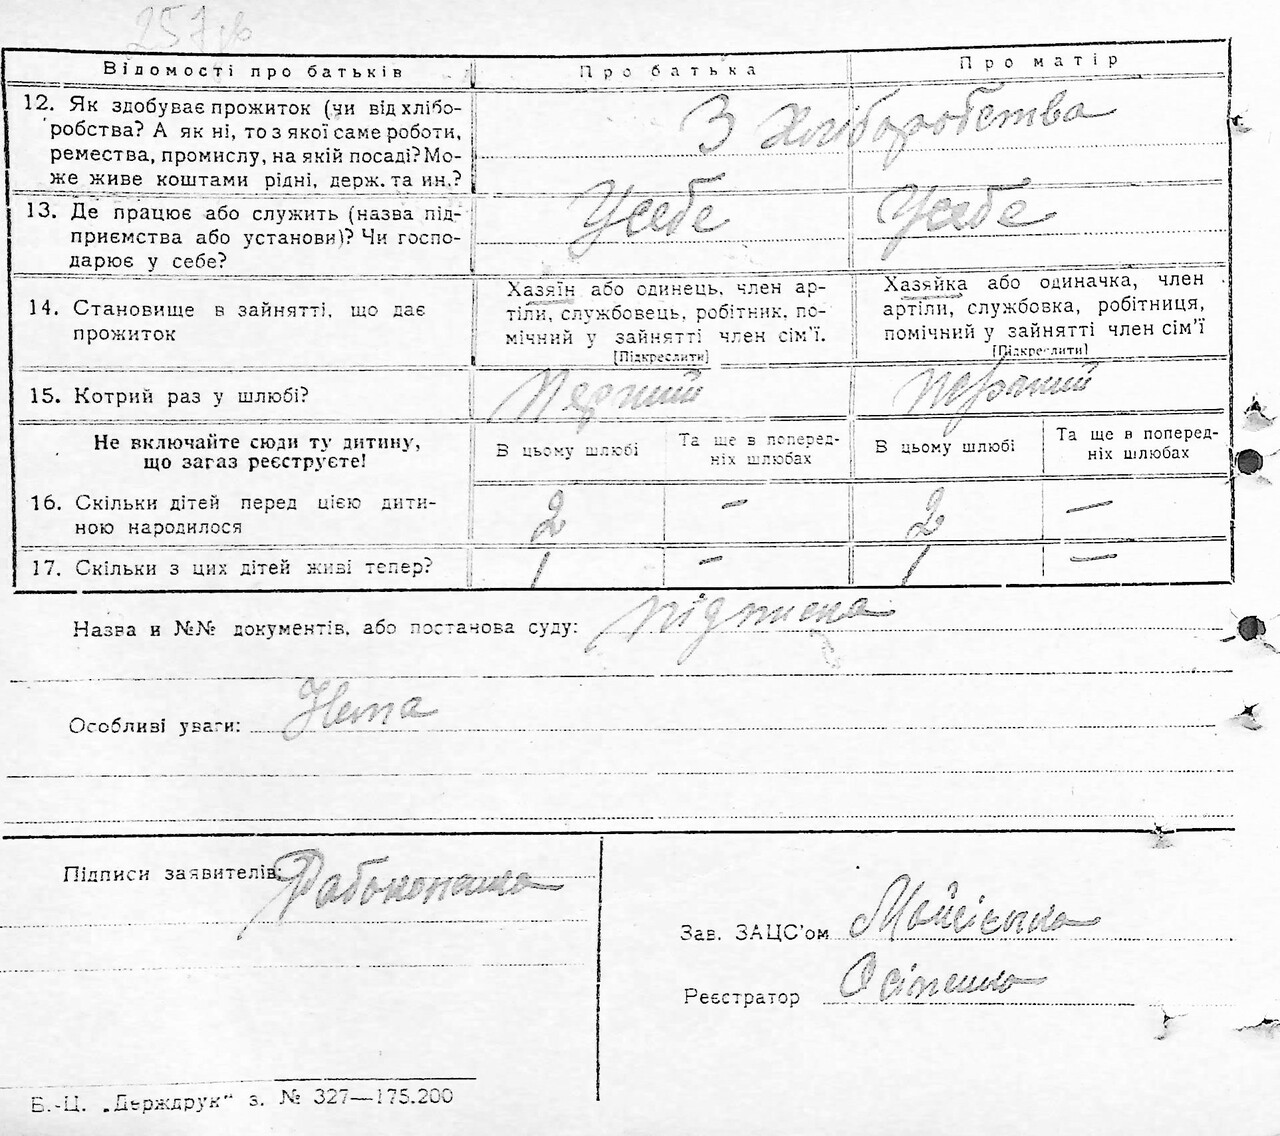 Відомості про батьків
Про батька
Про матір
12. Як здобуває прожиток (чи від хлібо-
робства? А як ні, то з якої саме роботи,
ремества, промислу, на якій посаді? Мо-
же живе коштами рідні, держ. та ин.?
З хліборобства
13. Де працює або служить (назва під-
приємства або установи)? Чи госпо-
дарює у себе?
У себе
У себе
14. Становище в зайнятті, що дає
прожиток
Хазяїн або одинець, член ар-
тіли, службовець, робітник, по-
мічний у зайнятті член сім'ї.
[Підкреслити]
Хазяйка або одиначка, член
артіли, службовка, робітниця,
помічний у зайнятті член сім'ї
[Підкреслити]
15. Котрий раз у шлюбі?
Перший
Перший
Не включайте сюди ту дитину,
що загаз реєструєте!
В цьому шлюбі
Та ще в поперед-
ніх шлюбах
В цьому шлюбі
Та ще в поперед-
ніх шлюбах
16. Скільки дітей перед цією дити-
ною народилося
2
—
2
—
17. Скільки з цих дітей живі тепер?
1
—
1
—
Назва и №№ документів, або постанова суду: підписка
Особливі уваги: Нета
Підписи заявителів:
Зав. ЗАЦС'ом
Реєстратор Осіпенко
Б.-Ц. „Держдрук" з. № 327—175.200